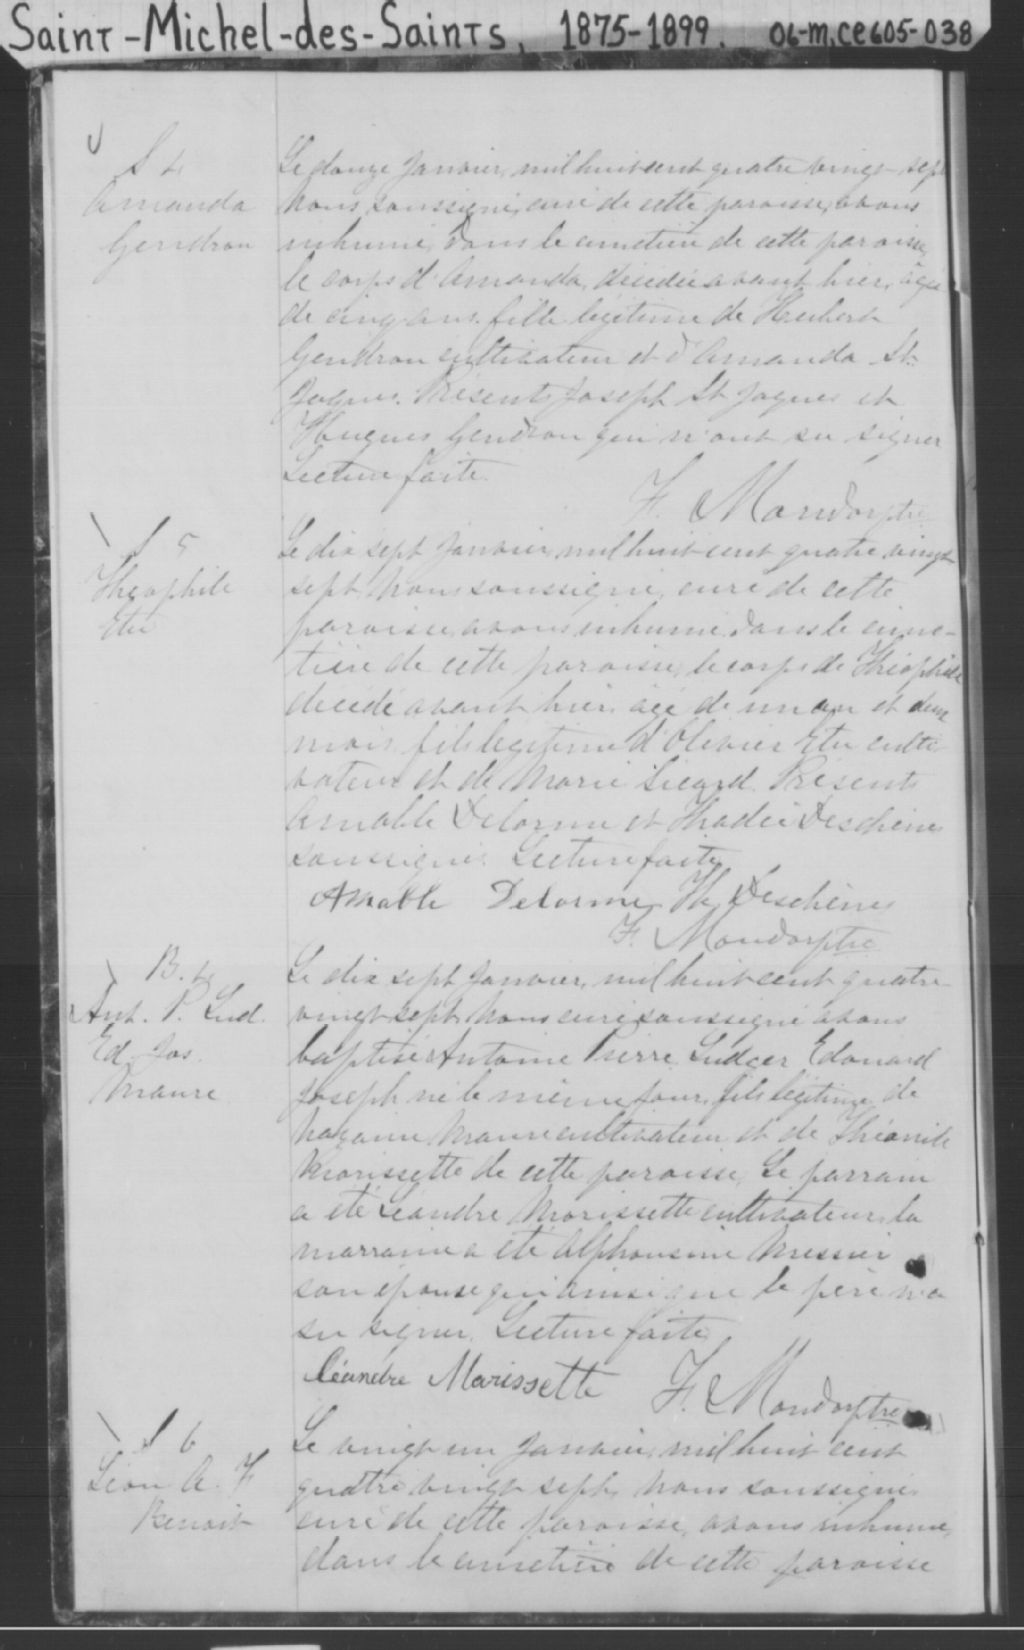 Saint-Michel-des-Saints, 1875-1899. 06-M, CE605-038
S 4
Amanda
Gendron
Le douze Janvier, mil huit cent quatre vingt sept
Nous soussigné, curé de cette paroisse, avons
inhumé, dans le cimetière de cette paroisse,
le corps d'Amanda, décédée avant hier, âgée
de cinq ans, fille légitime de
Gendron cultivateur et d'Amanda St
Jaques. Présents Joseph St Jaques et
Hugues Gendron qui n'ont su signer
Lecture faite.
F. Mondor ptre
S 5
Théophile
Etu
Le dix sept Janvier, mil huit cent quatre vingt
sept Nous soussigné, curé de cette
paroisse, avons inhumé, dans le cime-
tière de cette paroisse, le corps de Théophile
décédé avant hier, âgé de un an et deux
mois, fils légitime d'Olivier Etu culti-
vateur et de Marie Sicard. Présents
Amable Delorme et Thadée Deschênes
soussignés. Lecture faite
Amable Delorme Th Deschênes
F. Mondor ptre
B. 4
Ant. P. Lud.
Ed. Jos.
Maure
Le dix sept Janvier, mil huit cent quatre
vingt sept, Nous curé soussigné avons
baptisé Antoine Pierre Ludger Edouard
Joseph né le même jour, fils légitime de
Maure cultivateur et de
Morissette de cette paroisse. Le parrain
a été Léandre Morissette cultivateur, la
marraine a été Alphonsine Messier
son épouse qui ainsi que le père n'a
su signer. Lecture faite
Léandre Marissette F. Mondor ptre
S 6
Léon A. F
Benoit
Le vingt un Janvier, mil huit cent
quatre vingt sept, Nous soussigné
curé de cette paroisse, avons inhumé,
dans le cimetière de cette paroisse